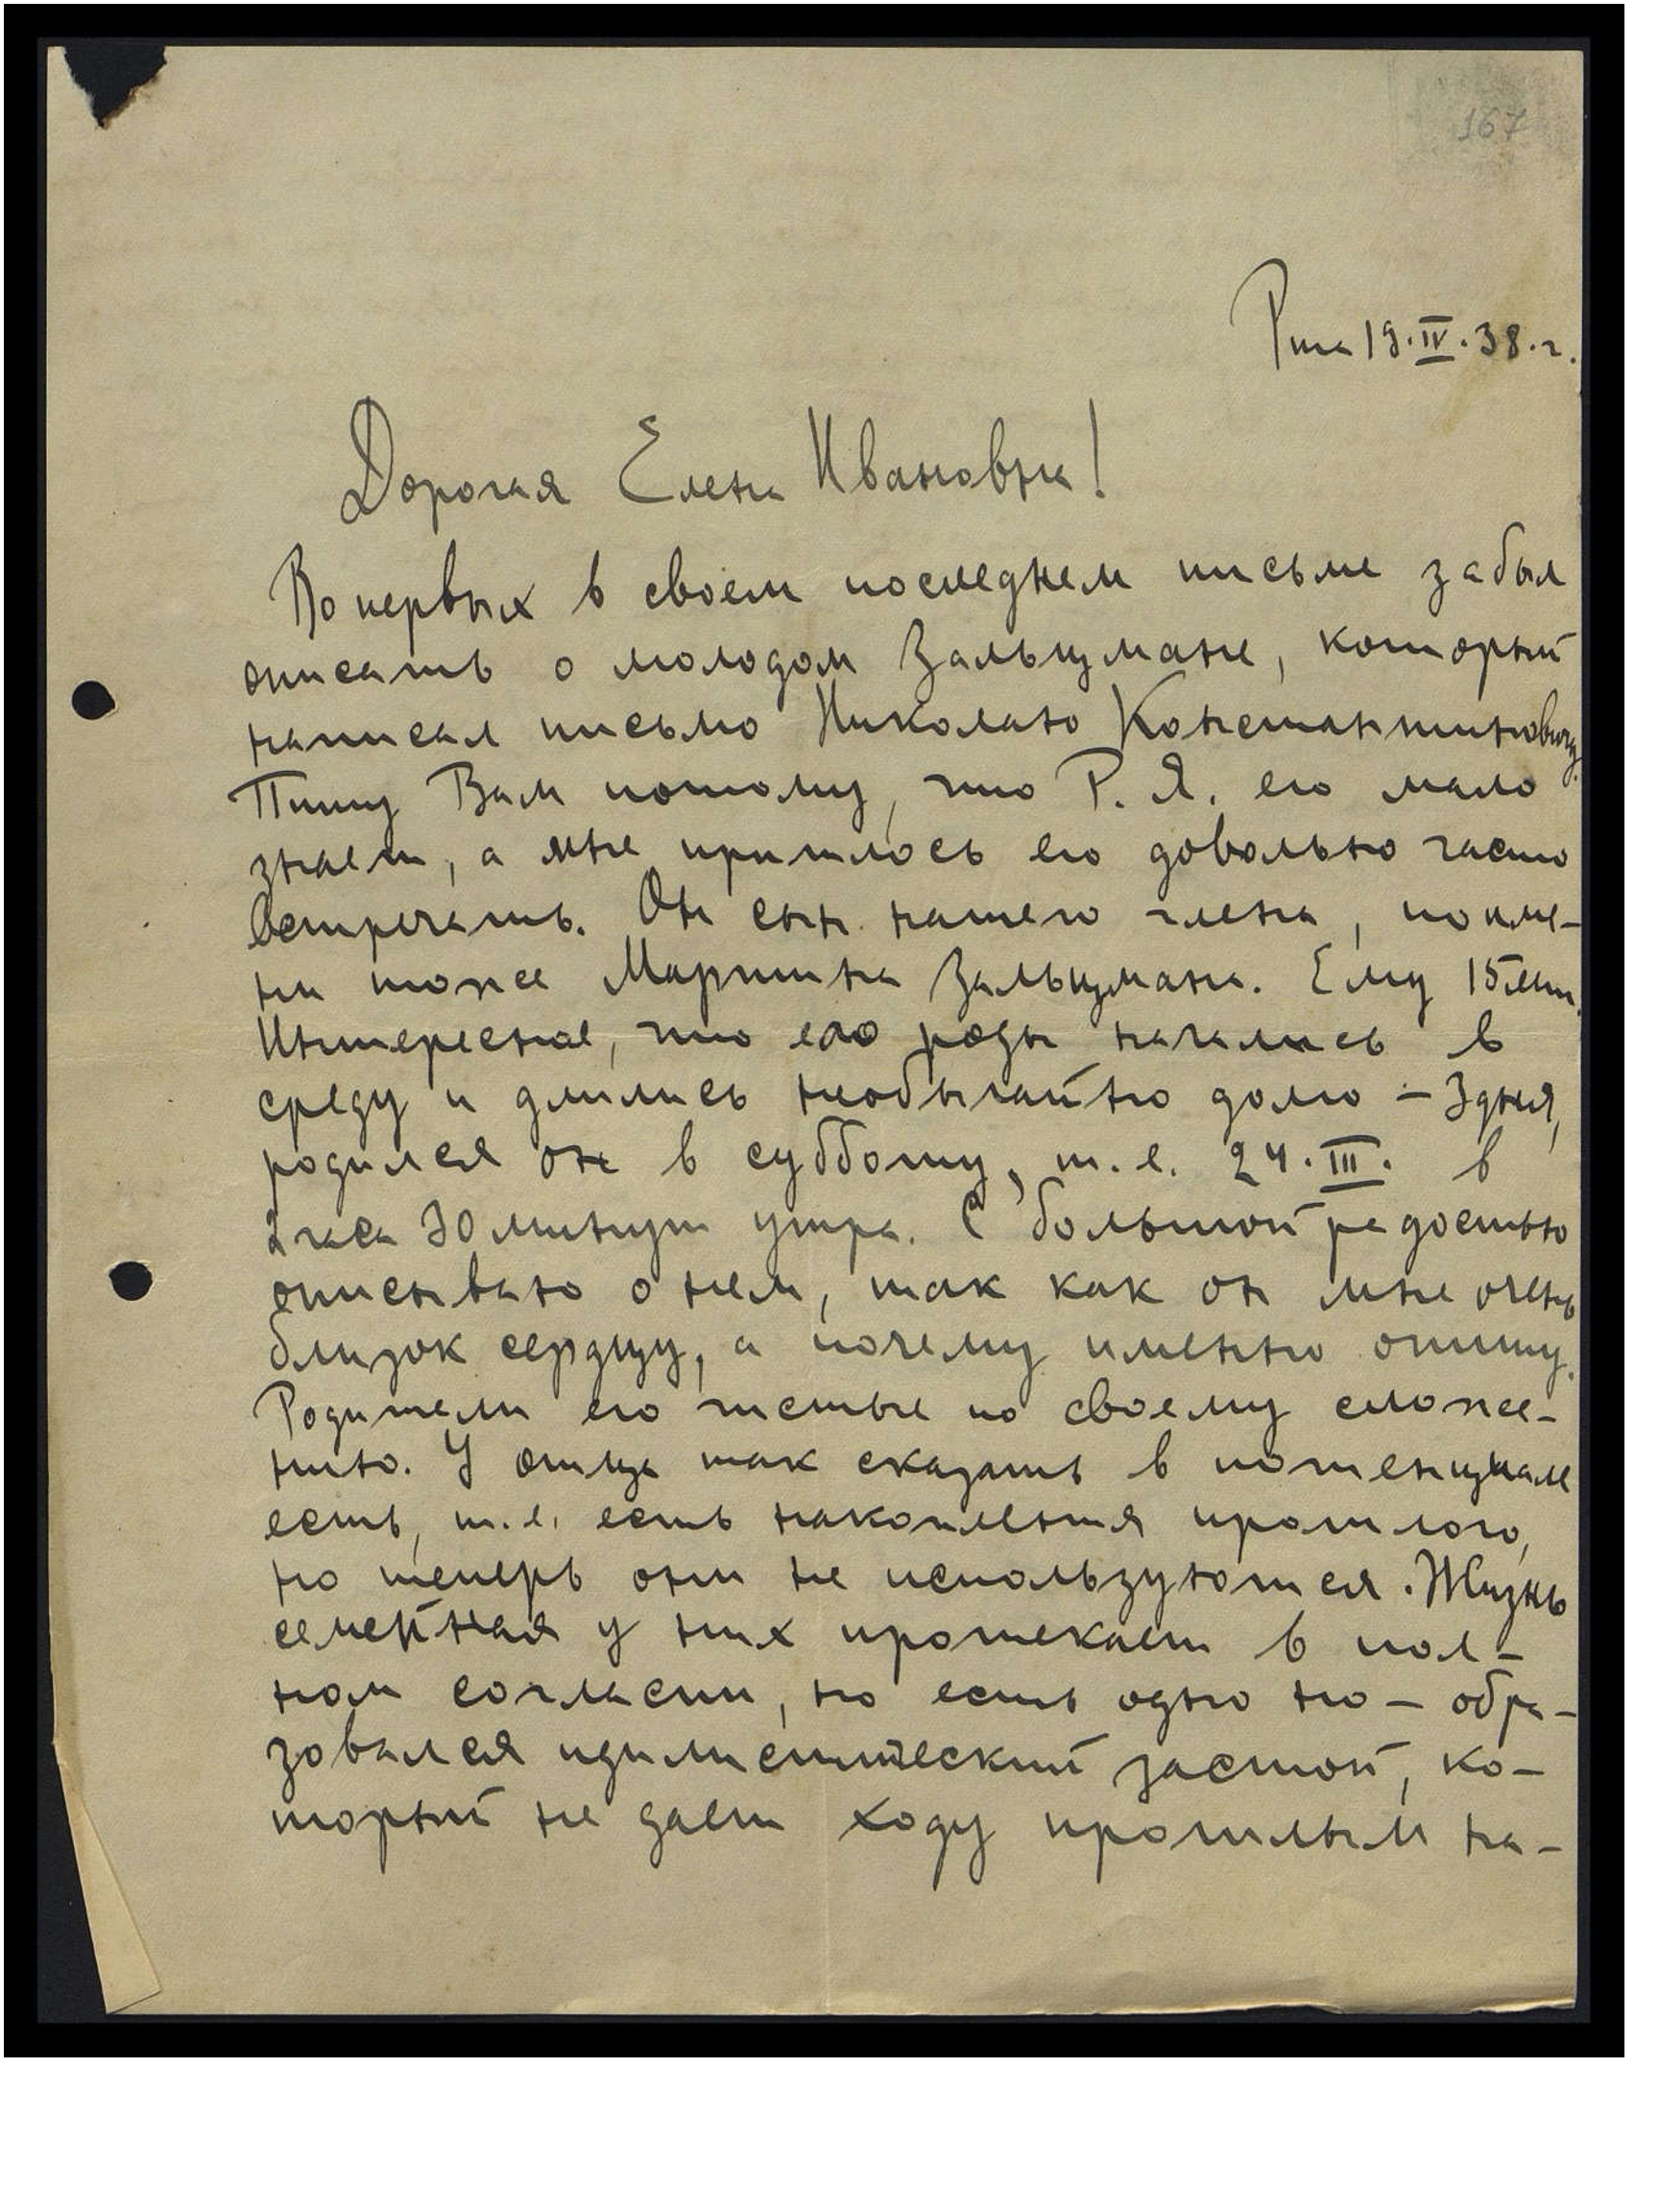 167
Рига 19.IV.38.г.
Дорогая Елена Ивановна!
Во первых в своем последнем письме забыл
описать о молодом Зальцмане, который
написал письмо Николаю Константиновичу.
Пишу Вам потому, что Р. Я. его мало
знает, а мне пришлось его довольно часто
встречать. Он сын нашего члена, по име-
ни тоже Мартина Зальцмана. Ему 15 лет.
Интересное, что его роды начались в
среду и длились необычайно долго – 3 дня,
родился он в субботу, т.е. 24.III. в
2 часа 30 минут утра. С большой радостью
описываю о нем, так как он мне очень
близок сердцу, а почему именно опишу.
Родители его чистые по своему сложе-
нию. У отца так сказать в потенциале
есть, т.е. есть накопления прошлого,
но теперь они не используются. Жизнь
семейная у них протекает в пол-
ном согласии, но есть одно но – обра-
зовался идилистический застой, ко-
торый не дает ходу прошлым на-